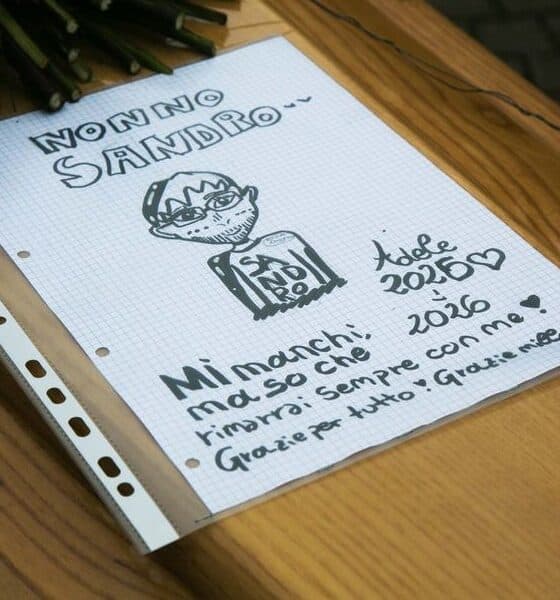 NONNO
SANDRO
SA
ND
RO
Adele
2025
2026
Mi manchi,
ma so che
rimarrai sempre con me!
Grazie per tutto! Grazie mille